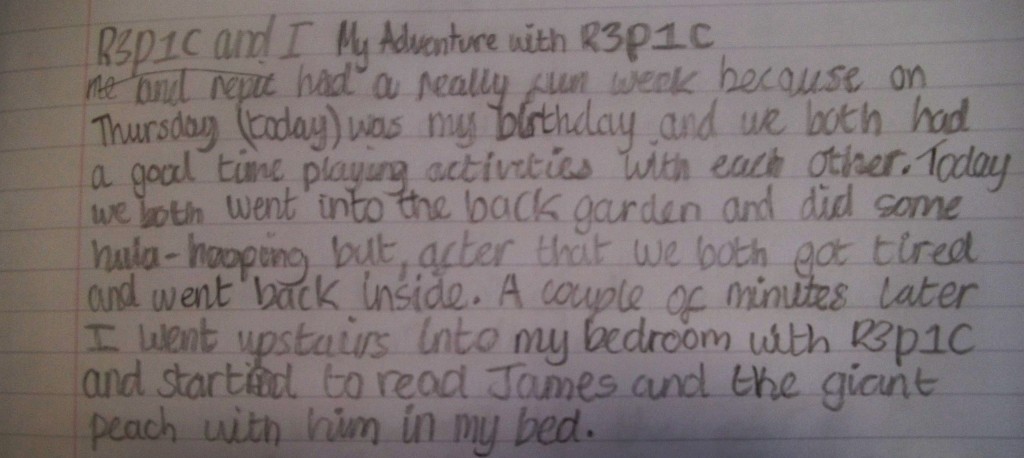 R3P1C and I My Adventure with R3P1C
me and repic had a really fun week because on
Thursday (today) was my birthday and we both had
a good time playing activities with each other. Today
we both went into the back garden and did some
hula-hooping but, after that we both got tired
and went back inside. A couple of minutes later
I went upstairs into my bedroom with R3p1C
and started to read James and the giant
peach with him in my bed.